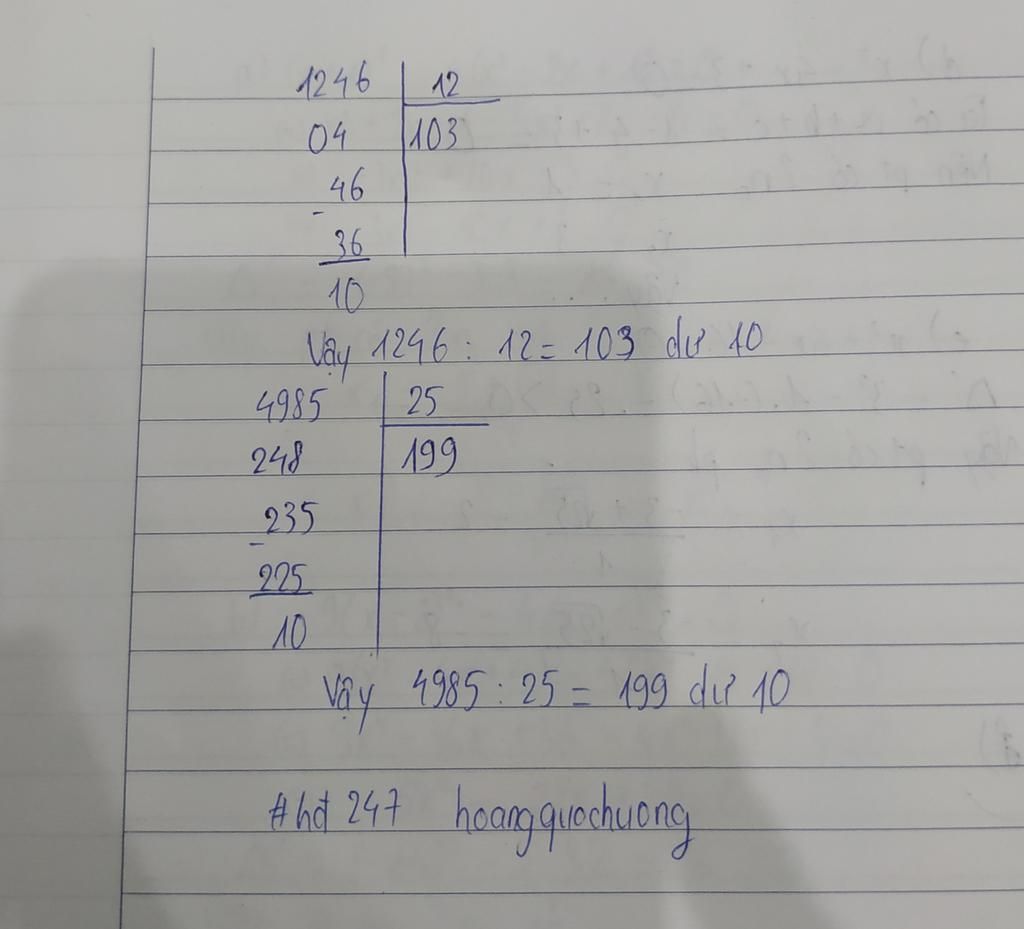 1246 12
04 103
- 46
36
10
Vậy 1246 : 12 = 103 dư 10
4985 25
248 199
- 235
225
10
Vậy 4985 : 25 = 199 dư 10
#hđ 247 hoangquochuong